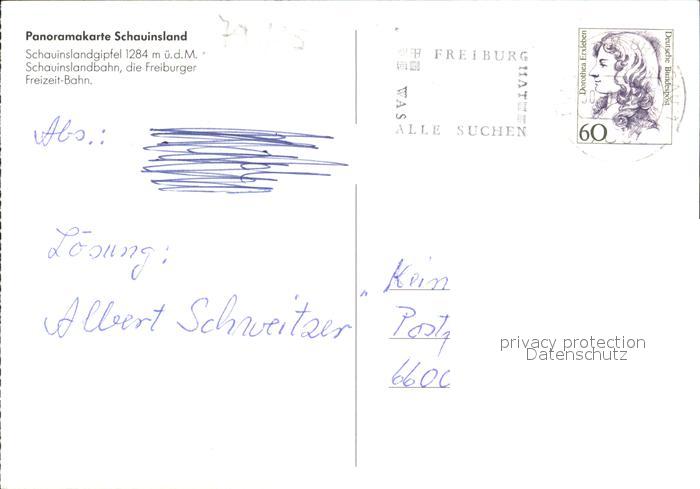 Panoramakarte Schauinsland
Schauinslandgipfel 1284 m ü.d.M.
Schauinslandbahn, die Freiburger
Freizeit-Bahn.
FREIBURG
HAT
WAS
ALLE SUCHEN
Dorothea Erxleben
Deutsche Bundespost
60
Abs.:
Lösung:
Albert Schweitzer
"Kein
Post
6600
privacy protection
Datenschutz